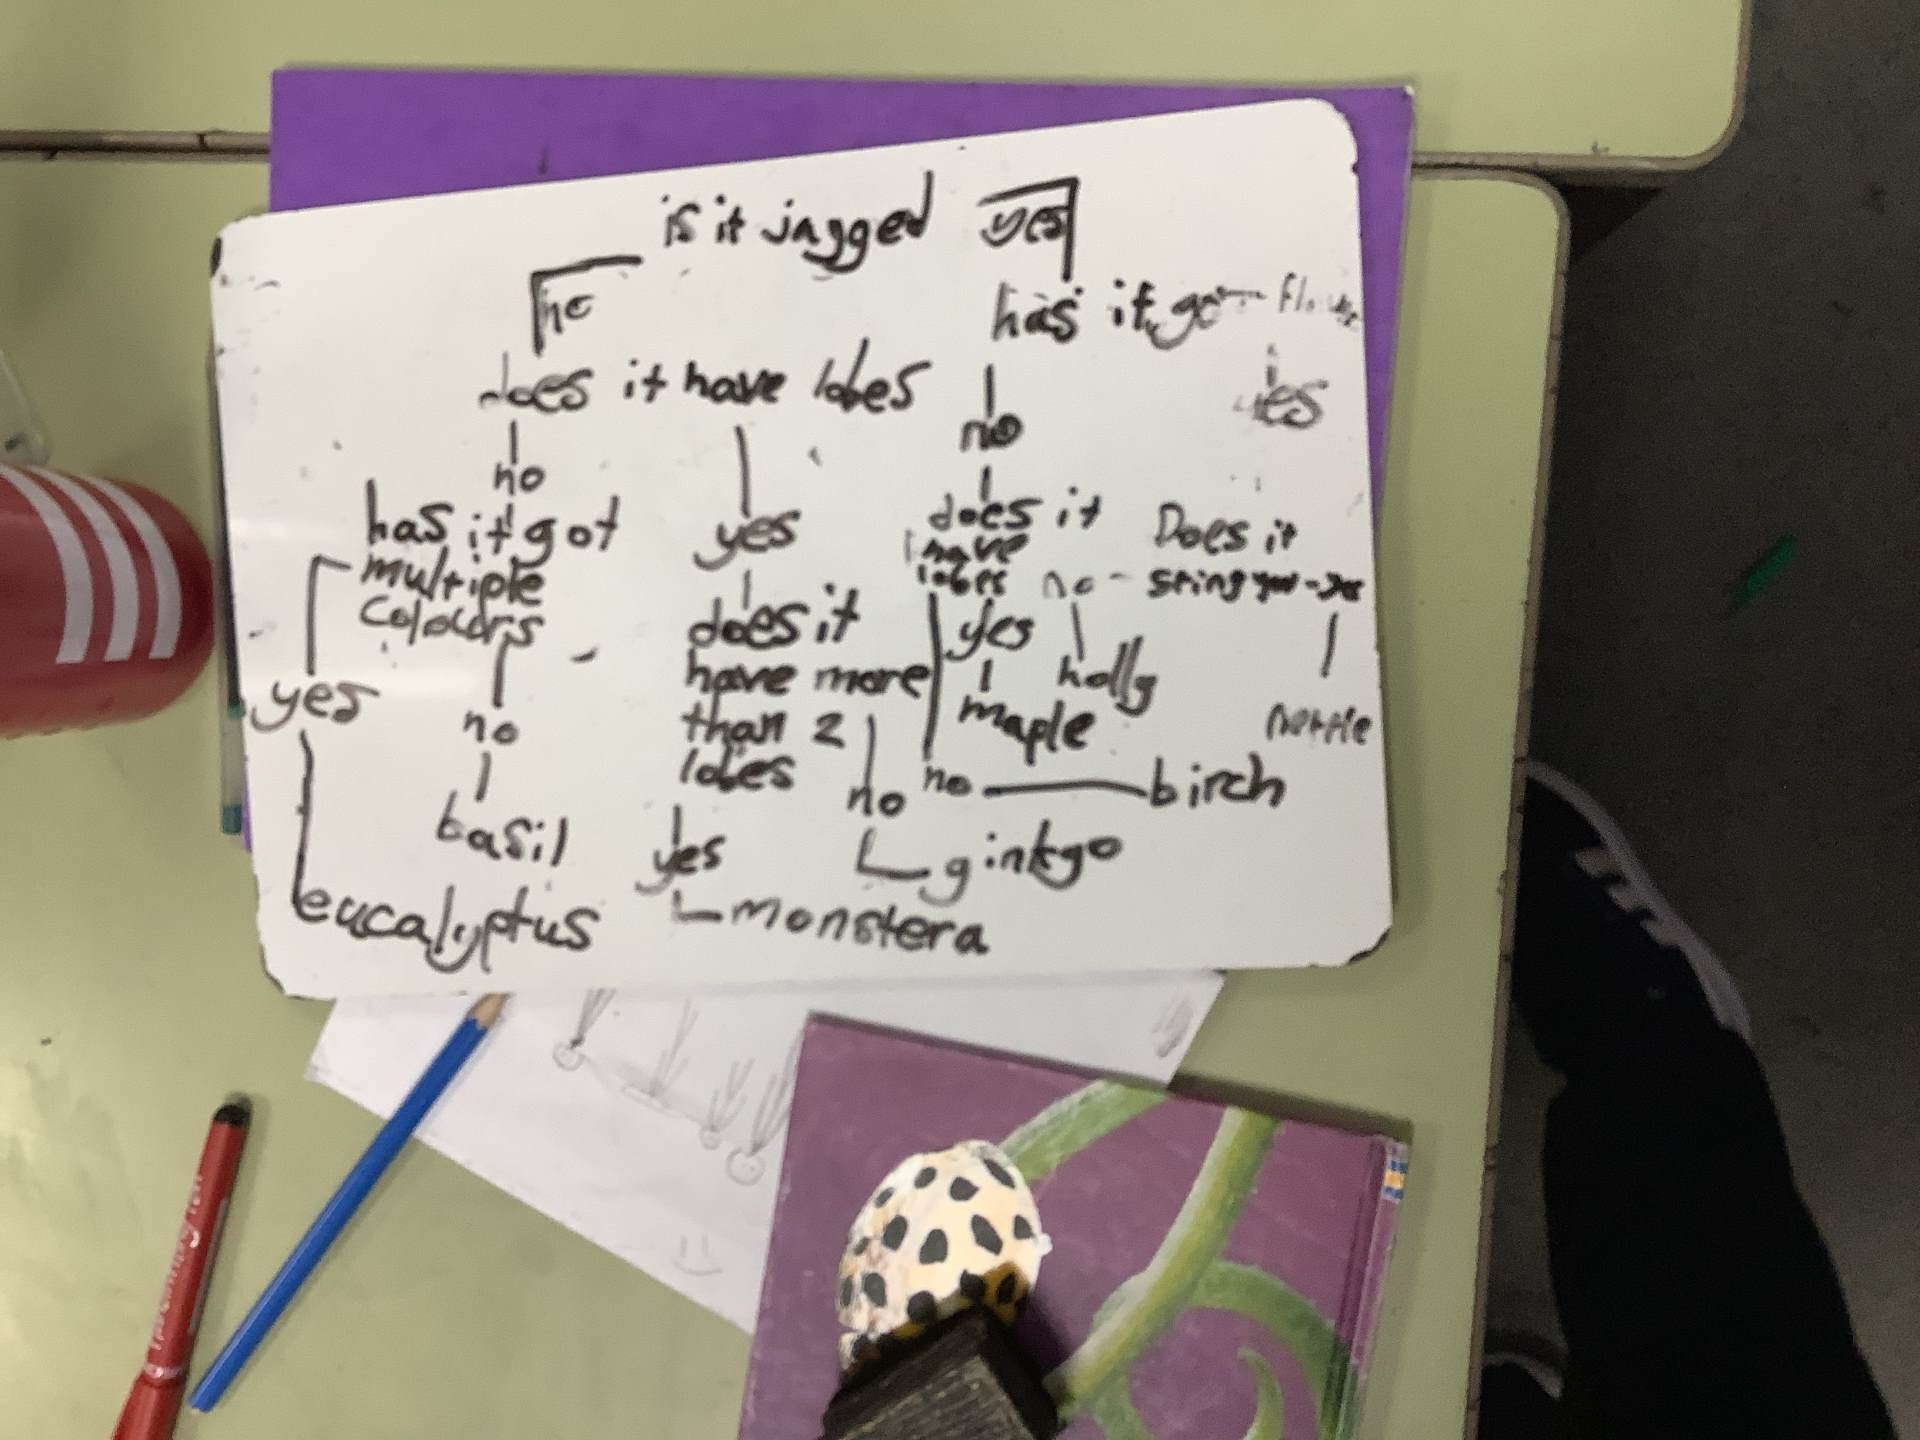 is it jagged yes
no
has it got
does it have lobes
no
yes
no
has it got
multiple
colours
yes
does it
have
lobes
no
Does it
sting you - yes
yes
does it
have more
than 2
lobes
yes
holly
maple
nettle
no
no
no birch
basil
yes
ginkgo
eucalyptus
monstera